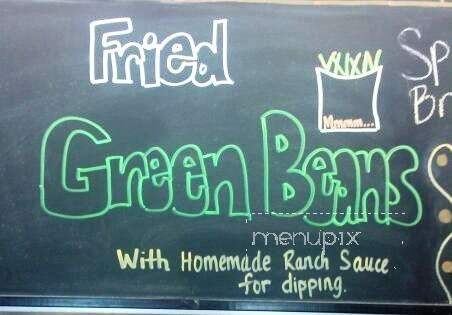 Fried
Mmmm...
Sp
Br
Green Beans
menupix
With Homemade Ranch Sauce
for dipping.